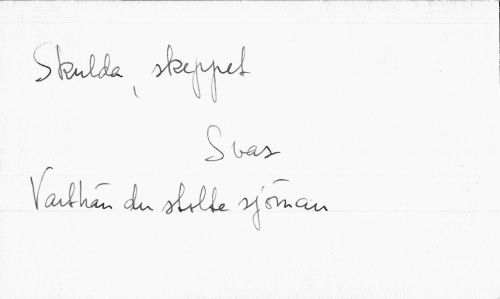 Skulda, skeppet
Svar
Varthän du stolte sjöman